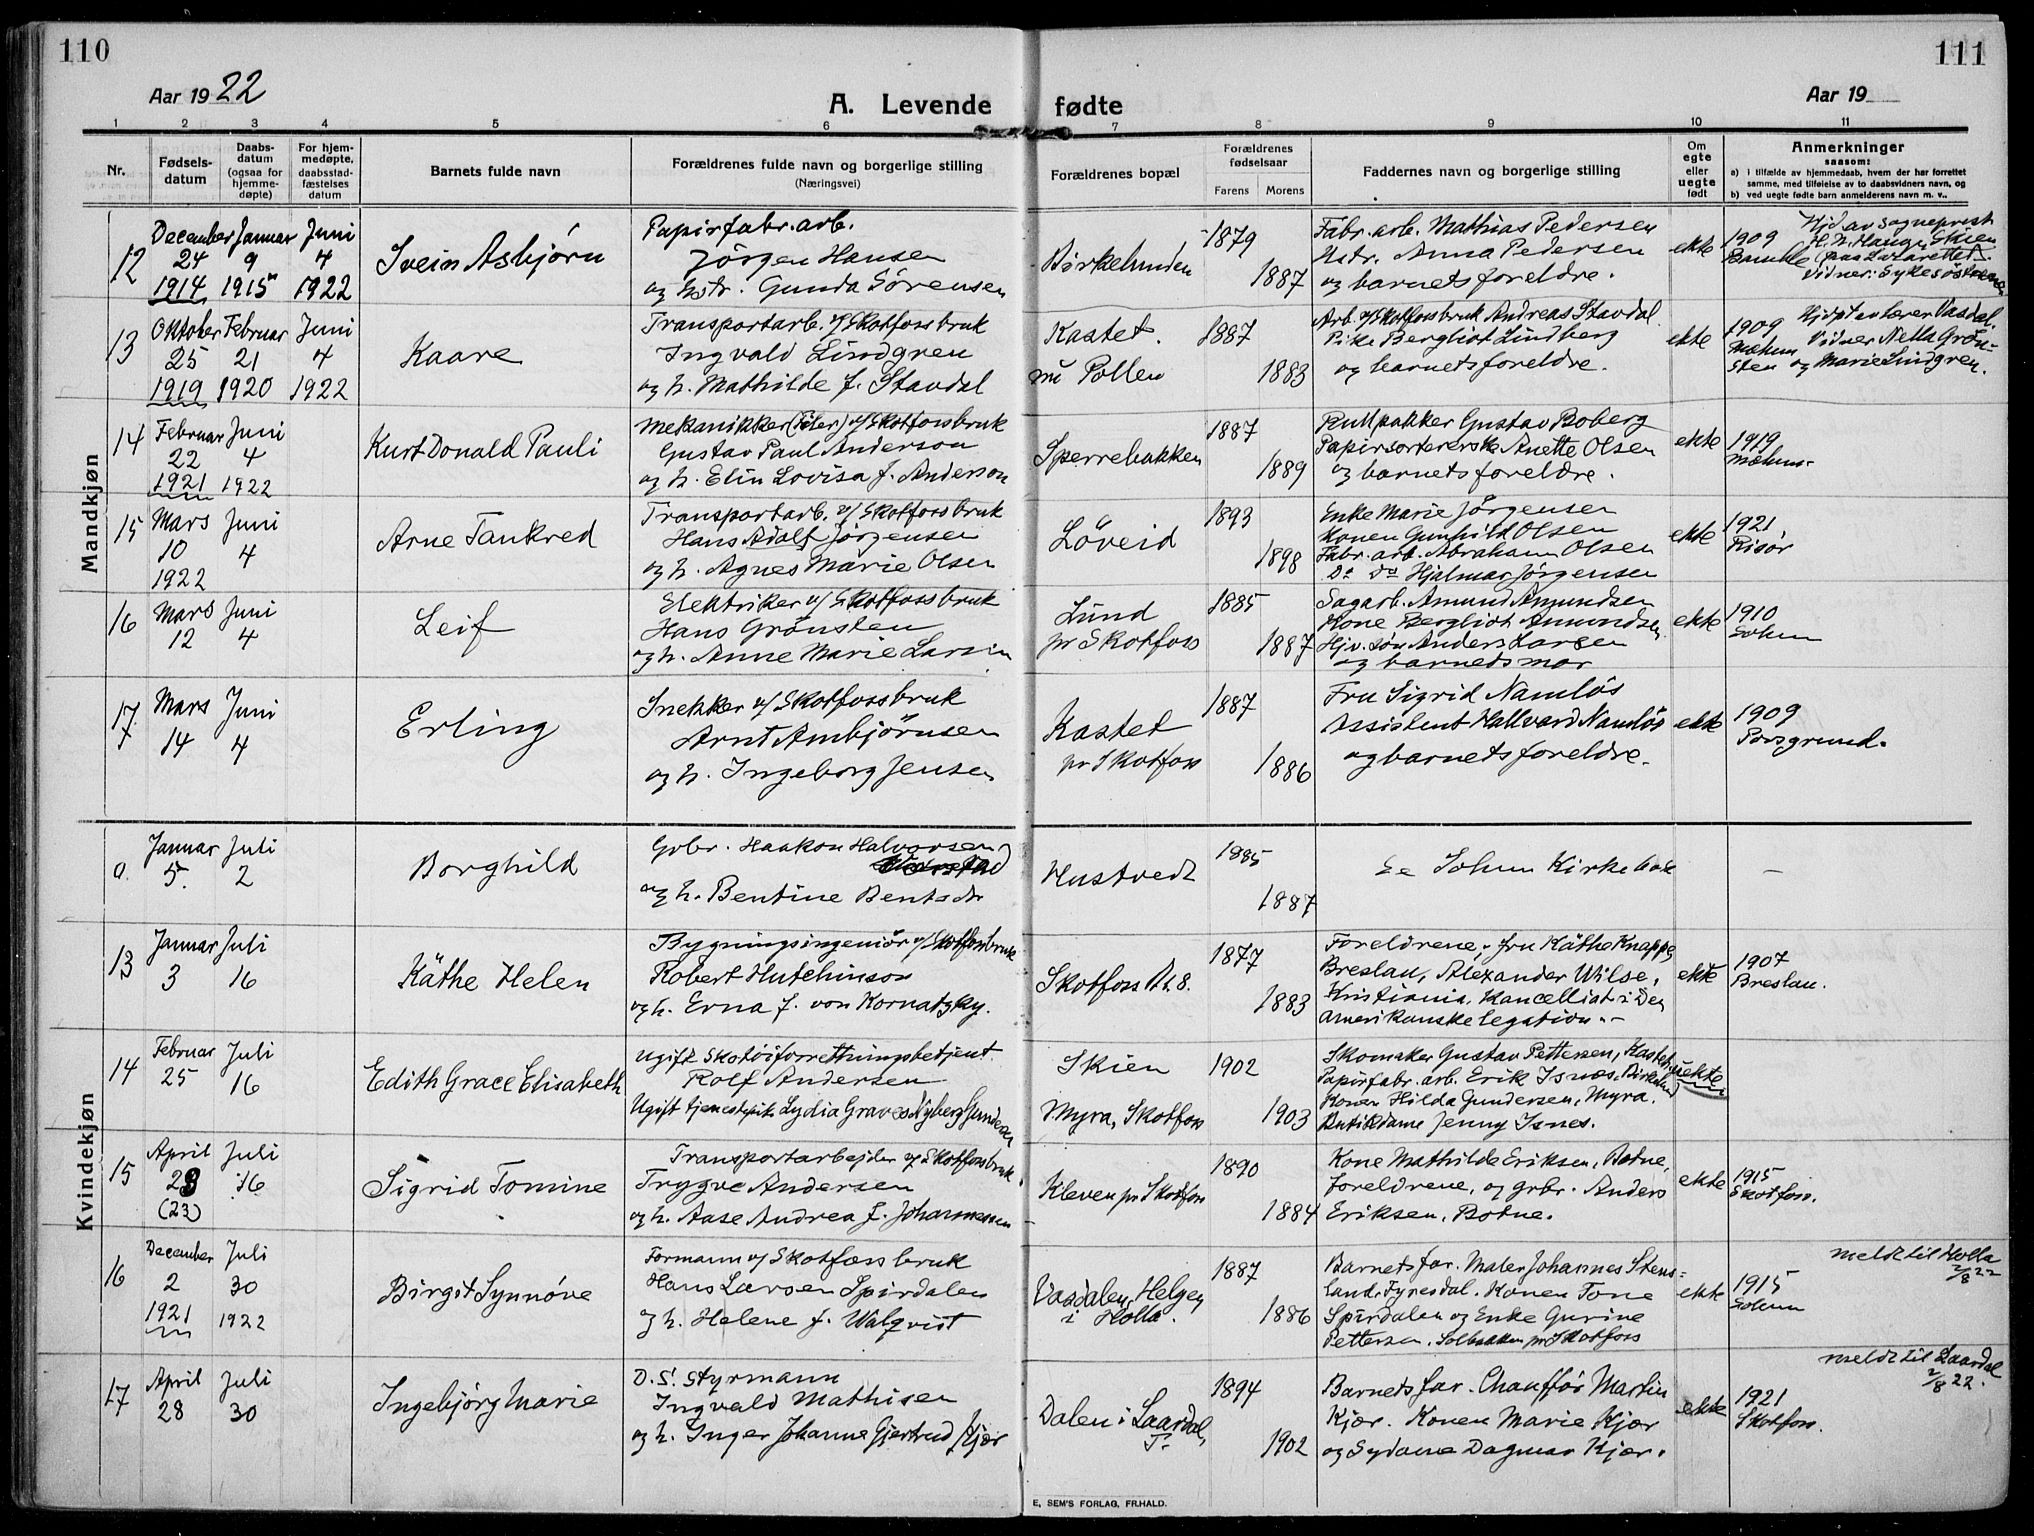 110
111
Aar 1922
A. Levende fødte
Aar 19
1 2 3 4 5 6 7 8 9 10 11
Nr.
Fødsels-
datum
Daabs-
datum
(ogsaa for
hjemme-
døpte)
For hjem-
medøpte,
daabsstad-
fæstelses
datum
Barnets fulde navn
Forældrenes fulde navn og borgerlige stilling
(Næringsvei)
Forældrenes bopæl
Forældrenes
fødselsaar
Farens Morens
Faddernes navn og borgerlige stilling
Om
egte
eller
uegte
født
Anmerkninger
saasom:
a) i tilfælde av hjemmedaab, hvem der har forrettet
samme, med tilføielse av to daabsvidners navn, og
b) ved uegte fødte barn anmelderens navn m. v..
Mandkjøn
12
December Januar Juni
24 9 4
1914 1915 1922
Svein Asbjørn
Papirfabr. arb.
Jørgen Hansen
og hstr. Gunda Sørensen
Birkelunden
1879
1887
Fabr. arb. Mathias Pedersen
Hstr. Anna Pedersen
og barnets foreldre.
ekte
1909
Bamble
Hjd av sogneprest
H. N. Hauge, Skien
(paa Lazarettet).
Vidner: Sykesøstrene
13
Oktober Februar Juni
25 21 4
1919 1920 1922
Kaare
Transportarb. v/ Skotfossbruk
Ingvald Lindgren
og h. Mathilde f. Stavdal
Kastet.
nu Pollen
1887
1883
Arb. v/ Skotfossbruk Andreas Stavdal
Pike Bergliot Lindberg
og barnets foreldre.
ekte
1909
Mælum
Hjdøpt av lærer Vasdal.
Vidner Nella Grøn-
sten og Marie Lindgren.
14
Februar Juni
22 4
1921 1922
Kurt Donald Pauli
Mekanikker (Filer) v/ Skotfossbruk
Gustav Paul Anderson
og h. Elin Lovisa f. Anderson
Sperrebakken
1887
1889
Rullpakker Gustav Boberg
Papirsortererske Anette Olsen
og barnets foreldre.
ekte
1919
Mælum
15
Mars Juni
10 4
1922
Arne Tankred
Transportarb. v/ Skotfossbruk
Hans Adolf Jørgensen
og h. Agnes Marie Olsen
Løveid
1893
1898
Enke Marie Jørgensen
Konen Gunhild Olsen
Fabr. arb. Abraham Olsen
Do do Hjalmar Jørgensen
ekte
1921
Risør
16
Mars Juni
12 4
Leif
Elektriker v/ Skotfossbruk
Hans Grønsten
og h. Anne Marie Larsen
Lund
pr Skotfoss
1885
1887
Sagarb. Amund Amundsen
Kone Bergliot Amundsen
Hjv. søn Anders Larsen
og barnets mor
ekte
1910
Solum
17
Mars Juni
14 4
Erling
Snekker v/ Skotfossbruk
Arnt Ambjørnsen
og h. Ingeborg Jensen
Kastet
pr Skotfoss
1887
1886
Fru Sigrid Namløs
Assistent Hallvard Namløs
og barnets foreldre.
ekte
1909
Porsgrund.
Kvindekjøn
a.
Januar Juli
5. 2
Borghild
Grbr. Haakon Halvorsen
og h. Bentine Bentsdtr
Hustvedt
1885
1887
Se Solum Kirkebok
—
13
Januar Juli
3 16
Käthe Helen
Bygningsingeniør v/ Skotfossbruk
Robert Hutchinson
og h. Erna f. von Kornatzky.
Skotfoss
1877
1883
Foreldrene, fru Käthe Knappe,
Breslau, Alexander Wilse,
Kristiania, Kancellist i Den
amerikanske legation.
ekte
1907
Breslau.
14
Februar Juli
25 16
Edith Grace Elisabeth
Ugift Skotøiforretningsbetjent
Rolf Andersen
Ugift tjenestepike Lydia Graves Nyberg Gundersen
Skien
Myra, Skotfoss
1902
1903
Skomaker Gustav Pettersen, Kastet
Papirfabr. arb. Erik Isnes, Birkelund
Konen Hilda Gundersen, Myra.
Butikdame Jenny Isnes.
uekte
15
April Juli
23 16
(23)
Sigrid Tomine
Transportarbejder v/ Skotfossbruk
Trygve Andersen
og h. Aase Andrea f. Johannessen
Kleven pr Skotfoss
1890
1884
Kone Mathilde Eriksen, Botne,
Foreldrene, og grbr. Anders
Eriksen, Botne.
ekte
1915
Skotfoss.
16
December Juli
2 30
1921 1922
Birgit Synnøve
Formann v/ Skotfoss bruk
Hans Larsen Spirdalen
og h. Helene f. Walqvist
Vasdalen, Helgen
i Holla.
1887
1886
Barnets far. Maler Johannes Stens-
land, Fyresdal. Konen Tone
Spirdalen og Enke Gurine
Pettersen, Solbakken pr Skotfoss
ekte
1915
Solum
meldt til Holla
2/8 22
17
April Juli
28 30
Ingebjørg Marie
D. S. Styrmann
Ingvald Mathisen
og h. Inger Johanne Gjertrud Kjær
Dalen i Laardal,
T.
1894
1902
Barnets far. Chauffør Martin
Kjær. Konen Marie Kjær
og Sydame Dagmar Kjær.
ekte
1921
Skotfoss.
meldt til Laardal
2/8 22.
E. SEM'S FORLAG, FR.HALD.